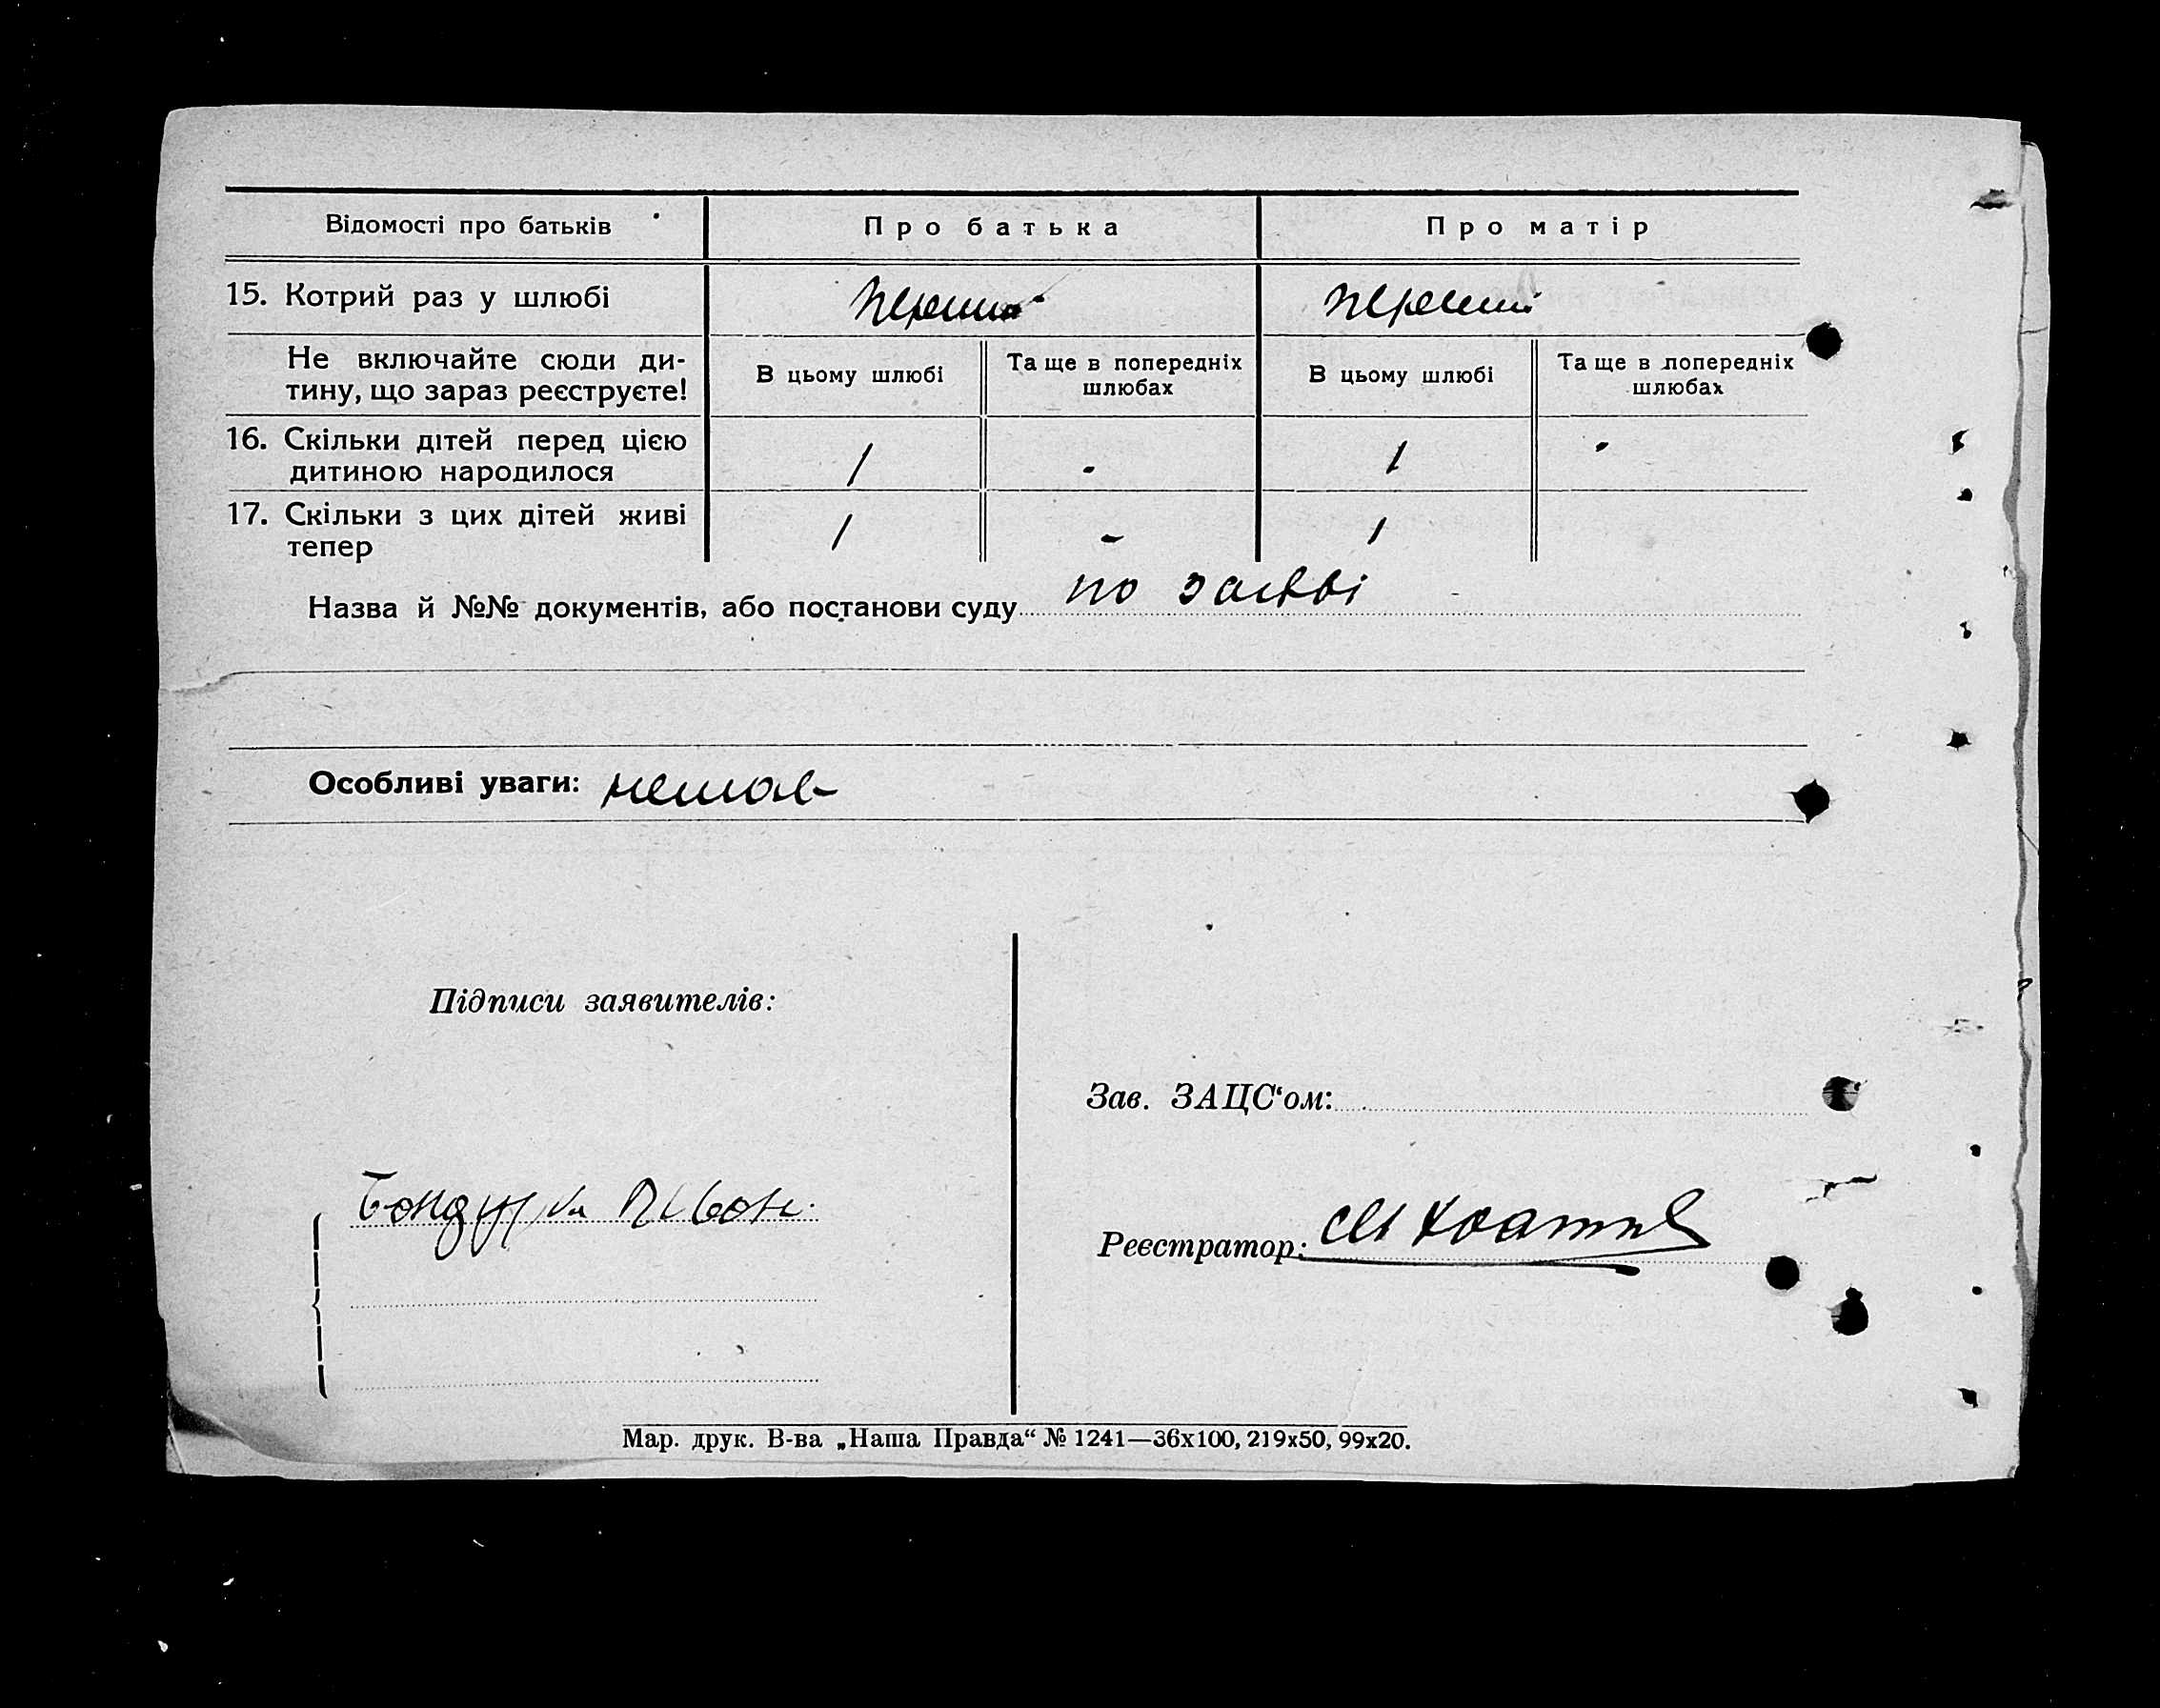 Відомості про батьків
Про батька
Про матір
15. Котрий раз у шлюбі
перший
перший
Не включайте сюди ди-
тину, що зараз реєструєте!
В цьому шлюбі
Та ще в попередніх
шлюбах
В цьому шлюбі
Та ще в попередніх
шлюбах
16. Скільки дітей перед цією
дитиною народилося
1
-
1
-
17. Скільки з цих дітей живі
тепер
1
-
1
Назва й №№ документів, або постанови суду по заяві
Особливі уваги: немає
Підписи заявителів:
Зав. ЗАЦС‘ом:
Реєстратор:
Мар. друк. В-ва „Наша Правда“ № 1241—36x100, 219x50, 99x20.